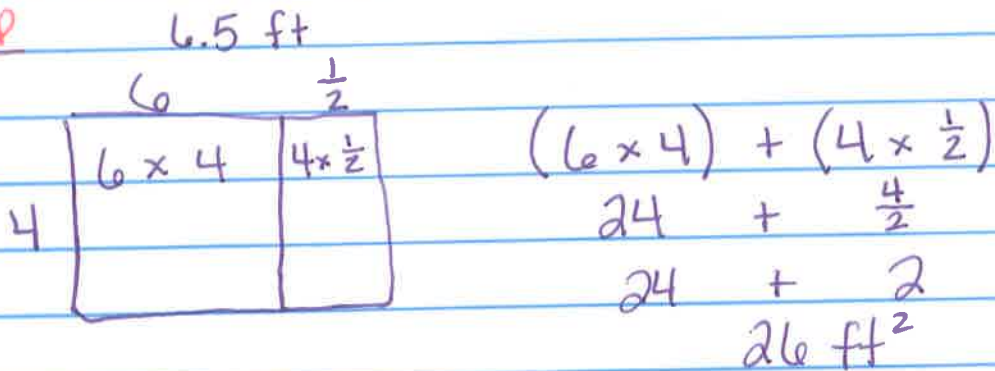 6.5 ft
6 1/2
6 × 4 4 × 1/2
4
(6 × 4) + (4 × 1/2)
24 + 4/2
24 + 2
26 ft²